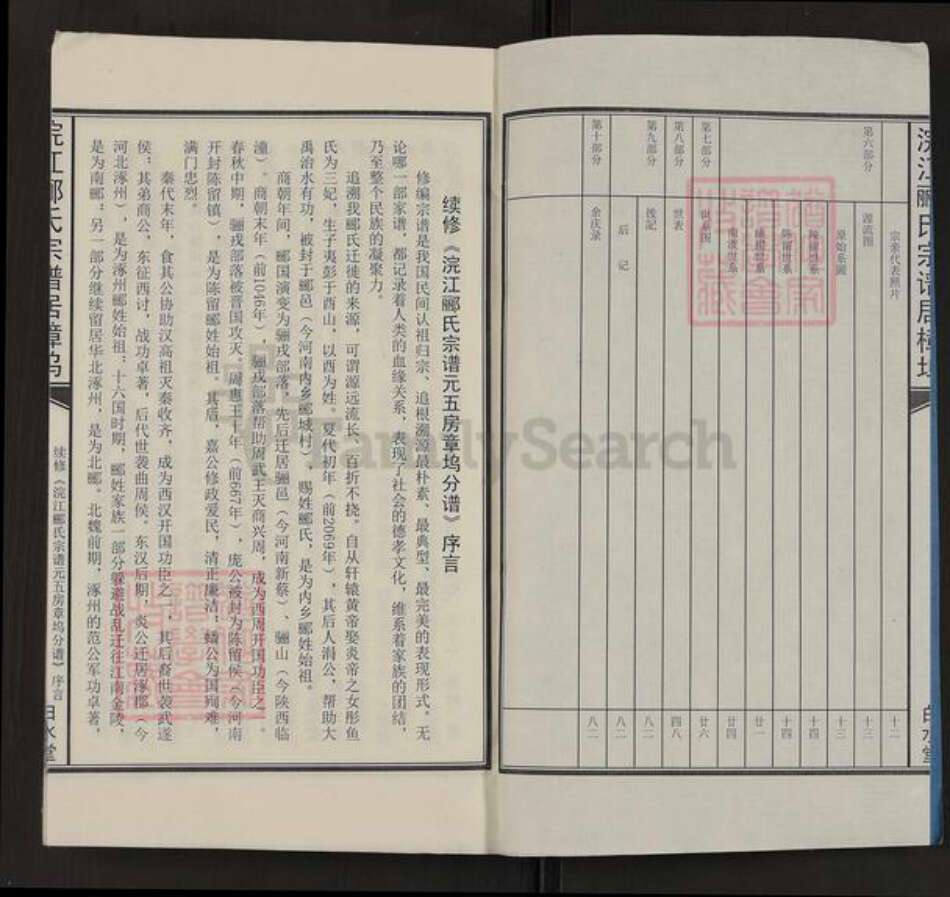 浣江郦氏宗谱居樟坞
白水堂
宗亲代表照片 十二
第六部分 源流图 十三
原始系圖 十三
陳留世系 十四
陈留世系 十四
廿一
南渡世系 廿四
第七部分 世系图 廿六
第八部分 世表 四八
第九部分 後記 八二
后记 八二
第十部分 余庆录 八二
续修《浣江郦氏宗谱元五房章坞分谱》序言
修编宗谱是我国民间认祖归宗、追根溯源最朴素、最典型、最完美的表现形式。无
论哪一部家谱，都记录着人类的血缘关系，表现了社会的德孝文化，维系着家族的团结，
乃至整个民族的凝聚力。
追溯我郦氏迁徙的来源，可谓源远流长、百折不挠。自从轩辕黄帝娶炎帝之女彤鱼
氏为三妃，生子夷彭于酉山，以酉为姓。夏代初年（前2069年），其后人涓公，帮助大
禹治水有功，被封于郦邑（今河南内乡郦城村），赐姓郦氏，是为内乡郦姓始祖。
商朝年间，郦国演变为骊戎部落，先后迁居骊邑（今河南新蔡）、骊山（今陕西临
潼）。商朝末年（前1046年），骊戎部落帮助周武王灭商兴周，成为西周开国功臣之一。
春秋中期，骊戎部落被晋国攻灭。周惠王十年（前667年），庞公被封为陈留侯（今河南
开封陈留镇），是为陈留郦姓始祖。其后，嘉公修政爱民，清正廉洁；蟠公为国殉难，
满门忠烈。
秦代末年，食其公协助汉高祖灭秦收齐，成为西汉开国功臣之一，其后裔世袭武遂
侯；其弟商公，东征西讨，战功卓著，后代世袭曲周侯。东汉后期，炎公迁居涿郡（今
河北涿州），是为涿州郦姓始祖；十六国时期，郦姓家族一部分躲避战乱迁往江南金陵，
是为南郦；另一部分继续留居华北涿州，是为北郦。北魏前期，涿州的范公军功卓著，
浣江郦氏宗谱居樟坞
续修《浣江郦氏宗谱元五房章坞分谱》序言
白水堂
FamilySearch